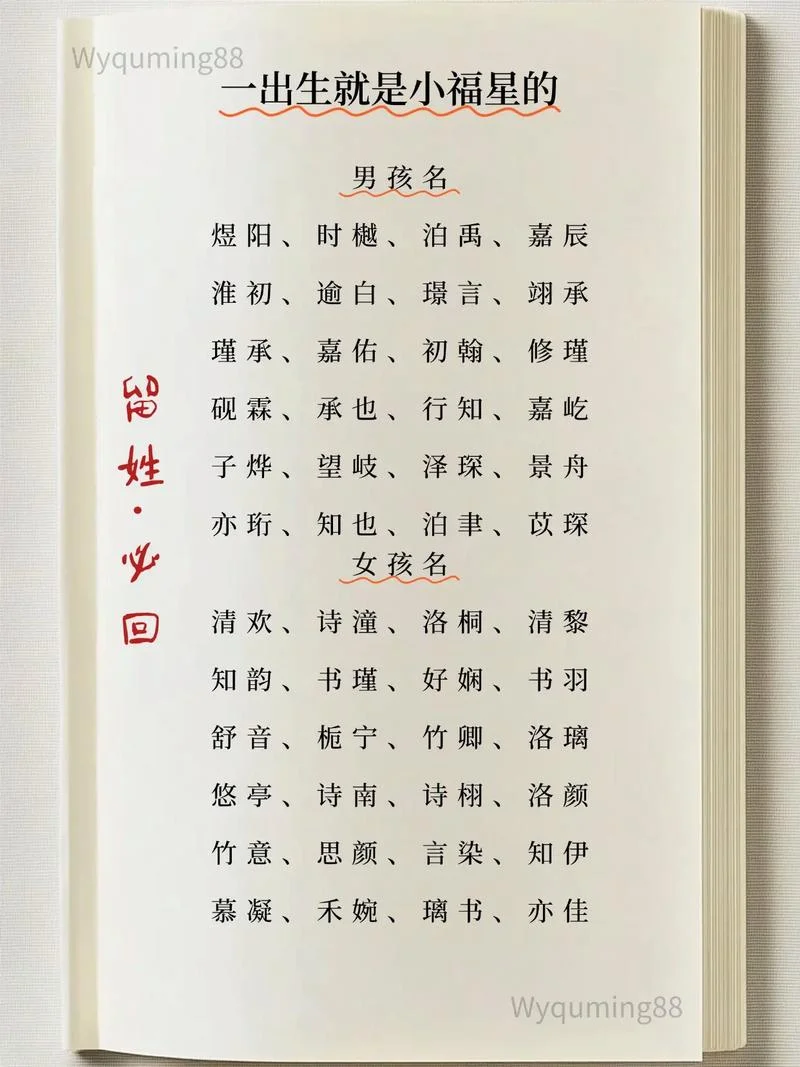 Wyquming88
一出生就是小福星的
男孩名
煜阳、时樾、泊禹、嘉辰
淮初、逾白、璟言、翊承
瑾承、嘉佑、初翰、修瑾
砚霖、承也、行知、嘉屹
子烨、望岐、泽琛、景舟
亦珩、知也、泊聿、苡琛
女孩名
清欢、诗潼、洛桐、清黎
知韵、书瑾、好娴、书羽
舒音、栀宁、竹卿、洛璃
悠亭、诗南、诗栩、洛颜
竹意、思颜、言染、知伊
慕凝、禾婉、璃书、亦佳
留姓·必回
Wyquming88